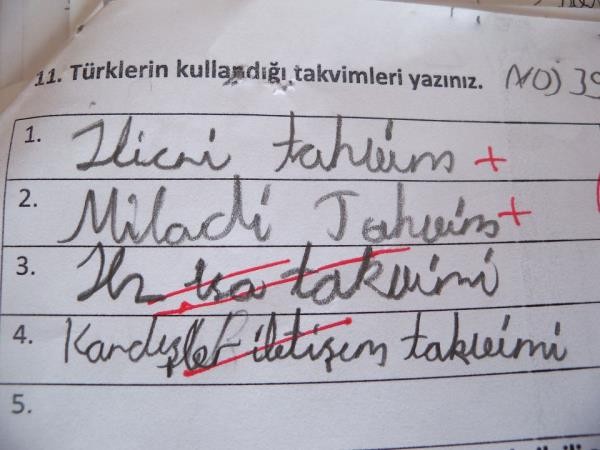 11. Türklerin kullandığı takvimleri yazınız. NO) 39
1. Hicri takvim +
2. Miladi Takvim +
3. Hz isa takvimi
4. Kardeşler iletişim takvimi
5.